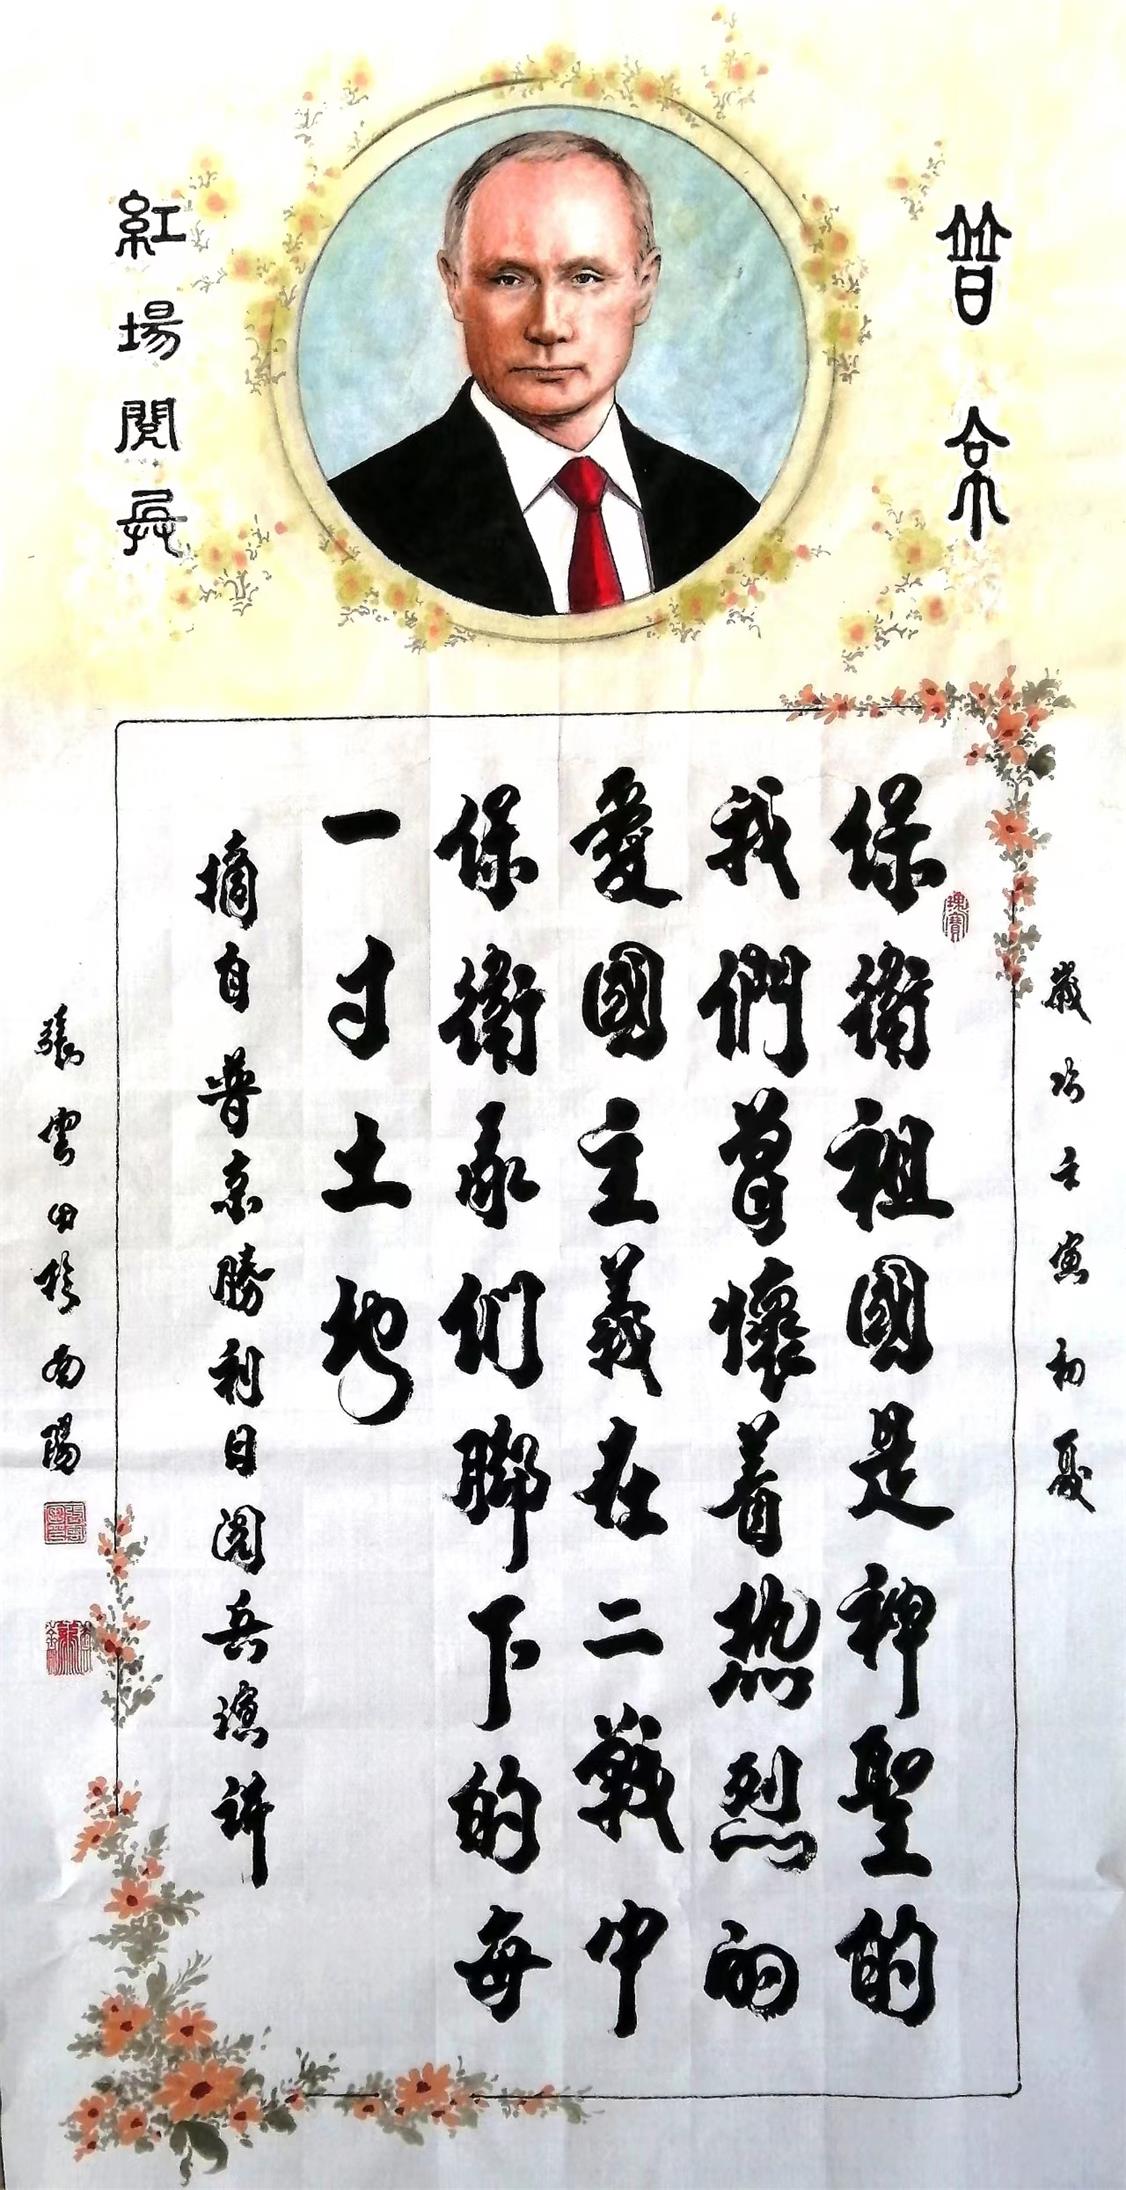 普京
紅場閱兵
歲次壬寅初夏
保衛祖國是神聖的
我們曾懷着热烈的
愛國主義在二戰中
保衛我们脚下的每
一寸土地
摘自普京勝利日閱兵演講
張雲田於南陽
瑰寶